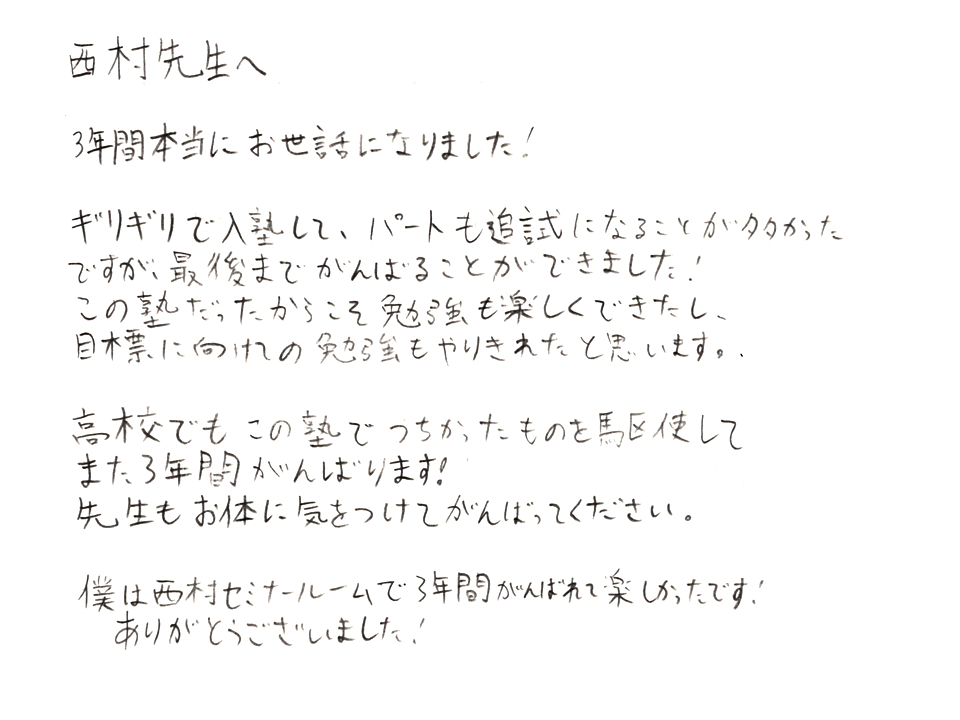 西村先生へ
3年間本当にお世話になりました!
ギリギリで入塾して、パートも追試になることが多かった
ですが、最後までがんばることができました!
この塾だったからこそ勉強も楽しくできたし、
目標に向けての勉強もやりきれたと思います。
高校でもこの塾でつちかったものを駆使して
また3年間がんばります!
先生もお体に気をつけてがんばってください。
僕は西村セミナールームで3年間がんばれて楽しかったです!
ありがとうございました!